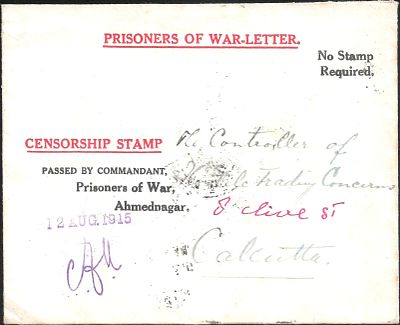 PRISONERS OF WAR-LETTER.
No Stamp
Required.
CENSORSHIP STAMP
The Controller of
PASSED BY COMMANDANT,
Trading Concerns
Prisoners of War,
Ahmednagar,
8 Clive St
12 AUG. 1915
Calcutta.